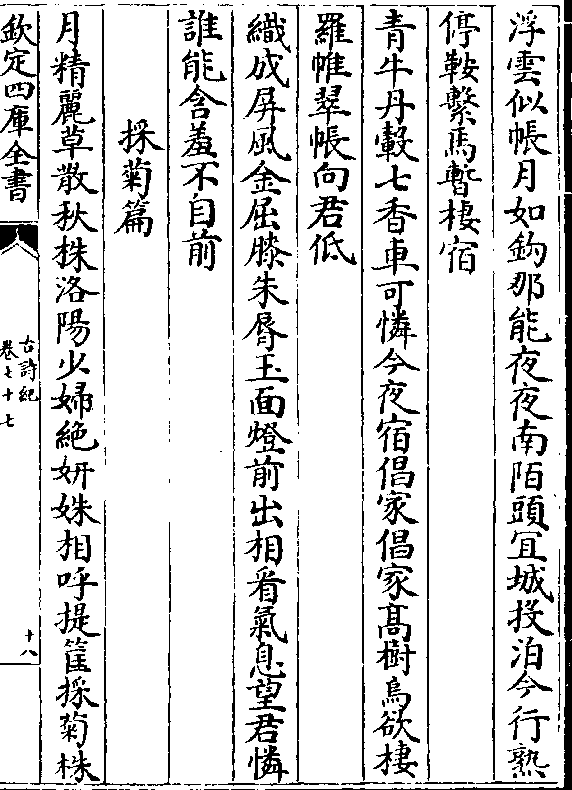 浮雲似帳月如鈎那能夜夜南陌頭冝城投泊今行熟
停鞍繫馬暫棲宿
青牛丹轂七香車可憐今夜宿倡家倡家髙樹烏欲棲
羅帷翠帳向君低
織成屏風金屈膝朱脣玉面燈前出相看氣息望君憐
誰能含羞不自前
採菊篇
月精麗草散秋株洛陽少婦絶妍姝相呼提筐採菊株
欽定四庫全書
古詩紀
卷七十七
十八